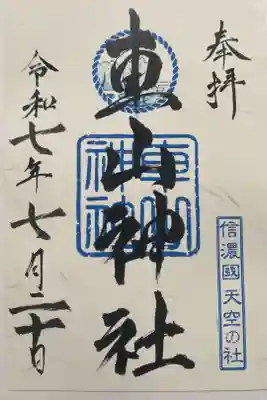 奉拝
車山神社
車山神社
信濃國 天空の社
令和七年七月二十日